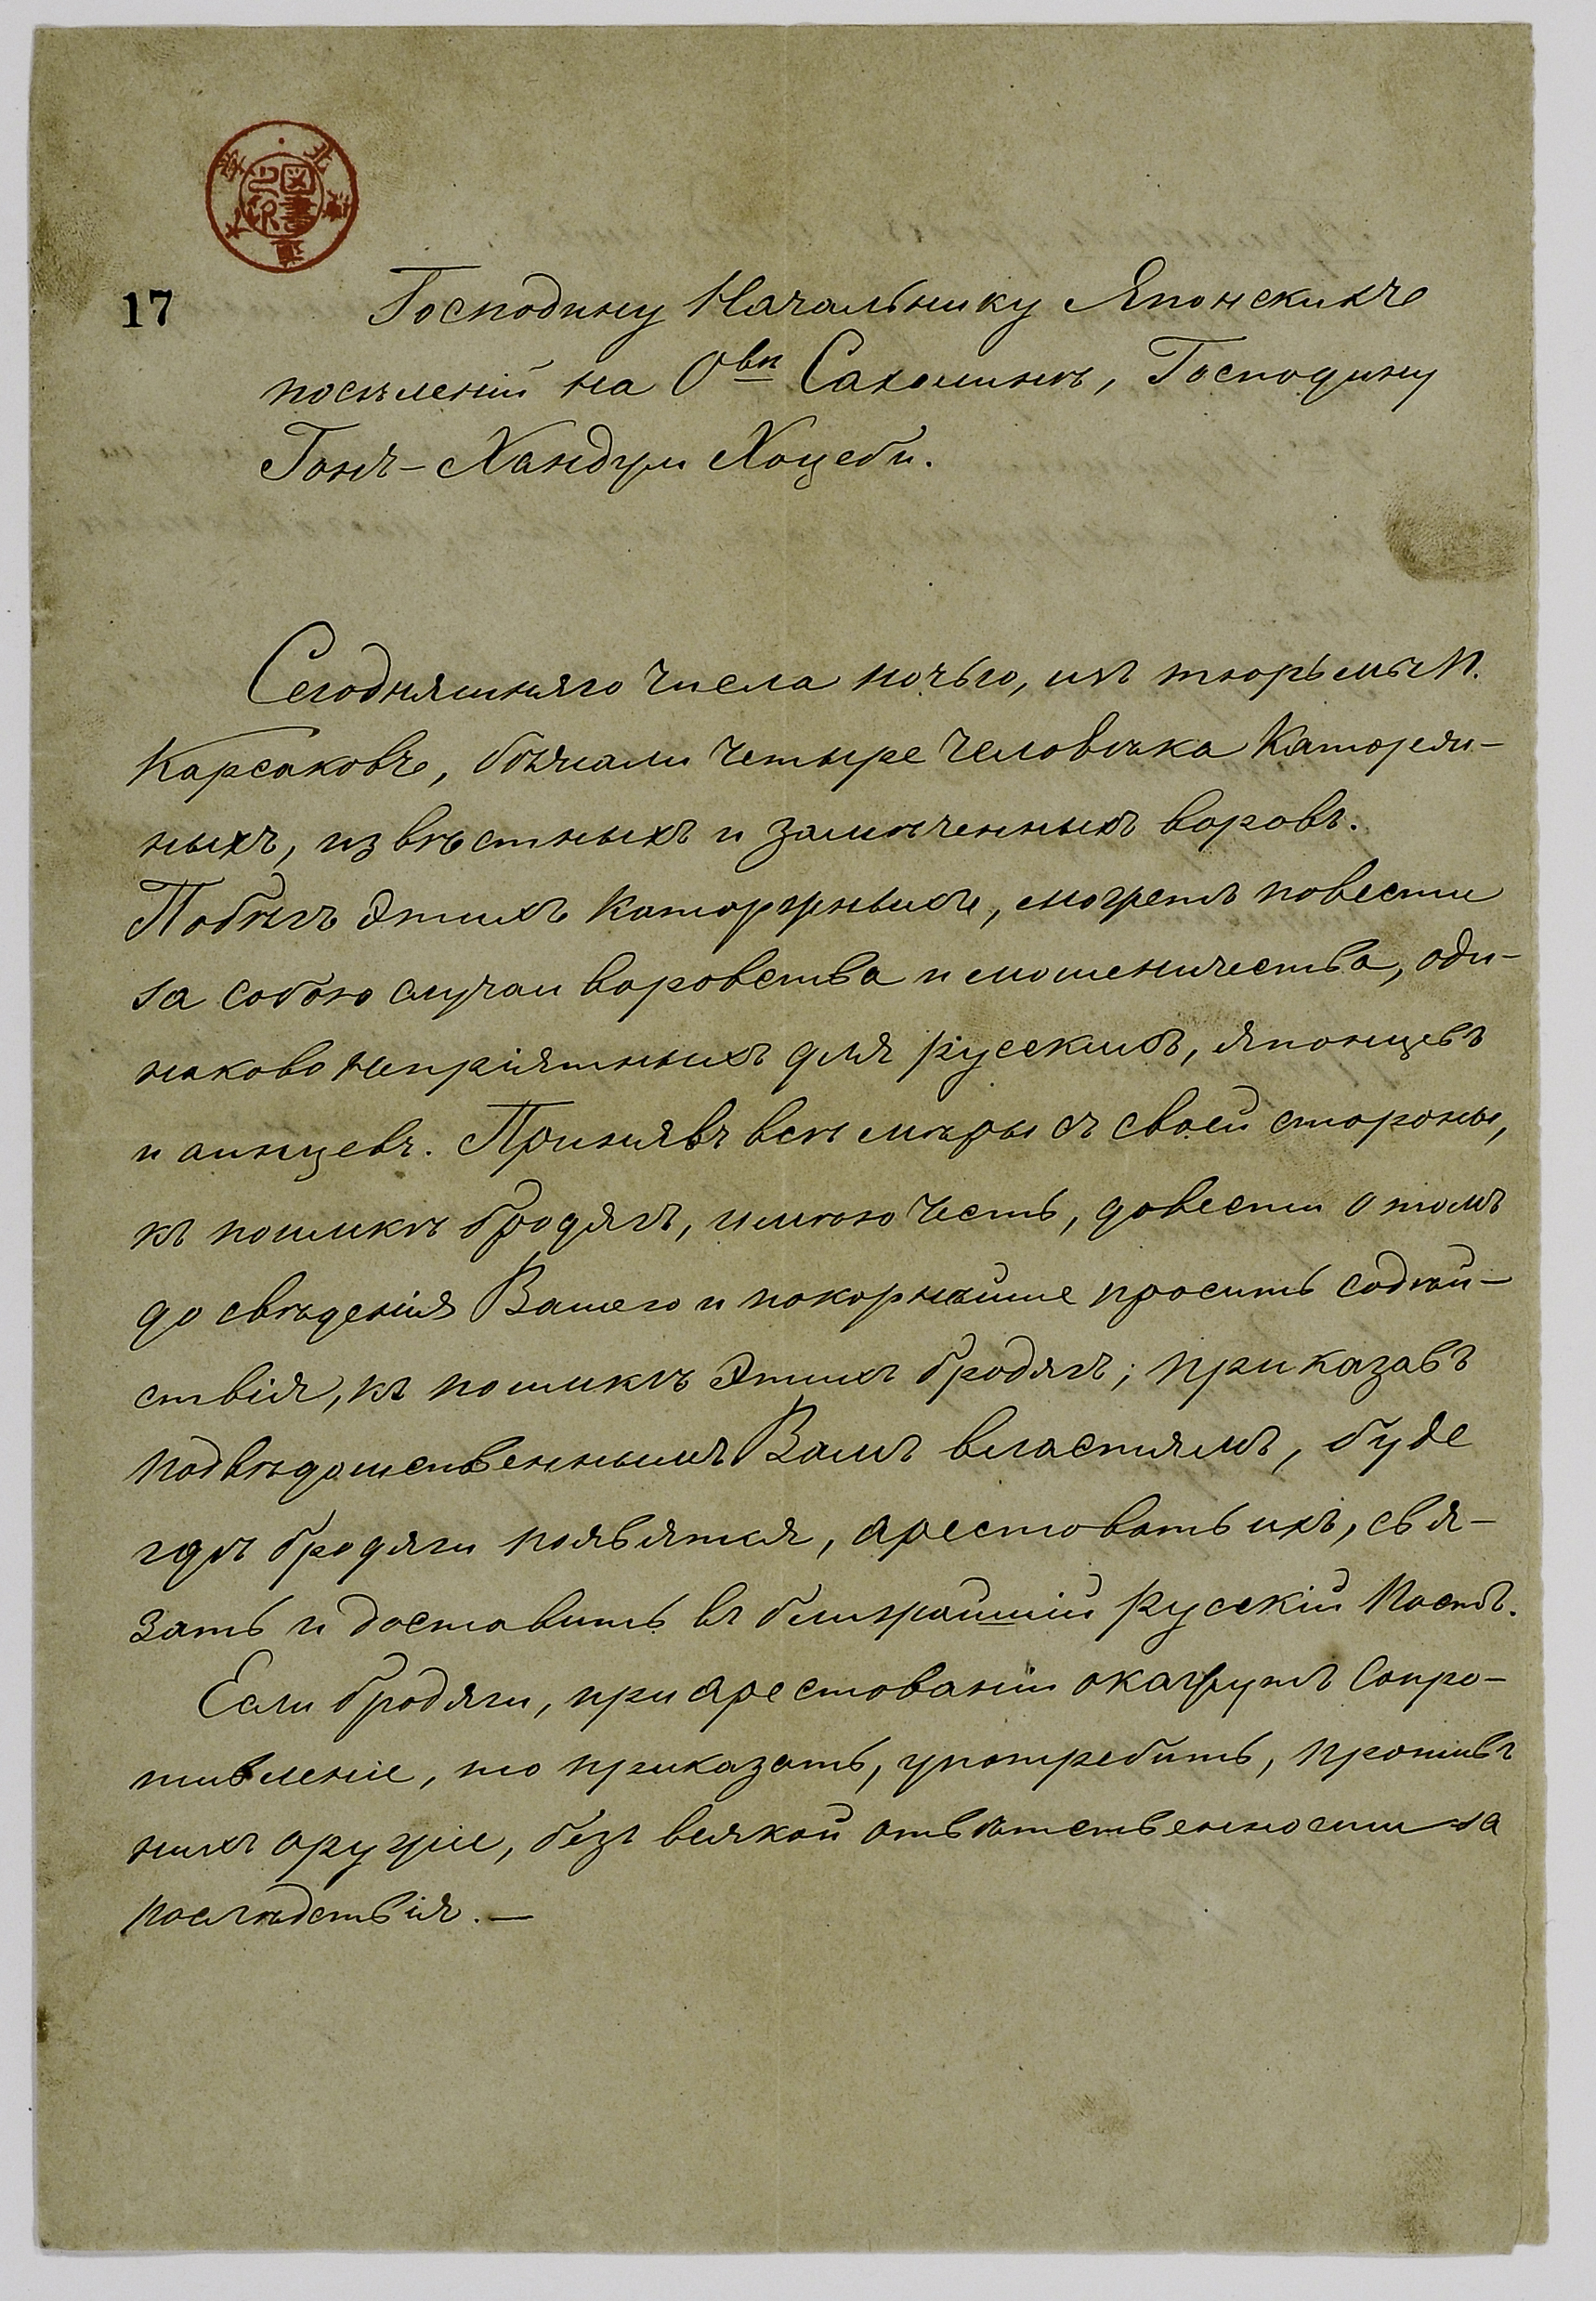 17
Господину Начальнику Японскихъ
поселеній на О<sup>вѣ</sup> Сахалинѣ, Господину
Гонъ-Хандзи Хоцеби.
Сегодняшняго числа ночью, изъ тюрьмы п.
Карсаковъ, бѣжали четыре человѣка каторж-
ныхъ, извѣстныхъ и замѣченныхъ воровъ.
Побѣгъ этихъ каторжныхъ, можетъ повести
за собою случаи воровства и мошеничества, оди-
наково непріятныхъ для русскихъ, японцевъ
и аинцевъ. Принявъ всѣ мѣры съ своей стороны,
къ поимкѣ бродягъ, имѣю честь, довести о томъ
до свѣденія Вашего и покорнѣйше просить содѣй-
ствія, къ поимкѣ этихъ бродягъ; приказавъ
подвѣдомственнымъ Вамъ властямъ, буде
гдѣ бродяги появятся, арестовать ихъ, свя-
зать и доставить въ ближайшій русскій Постъ.
Если бродяги, при арестованіи окажутъ сопро-
тивленіе, то приказать, употребить, противъ
нихъ оружіе, безъ всякой отвѣтственности за
послѣдствія.—